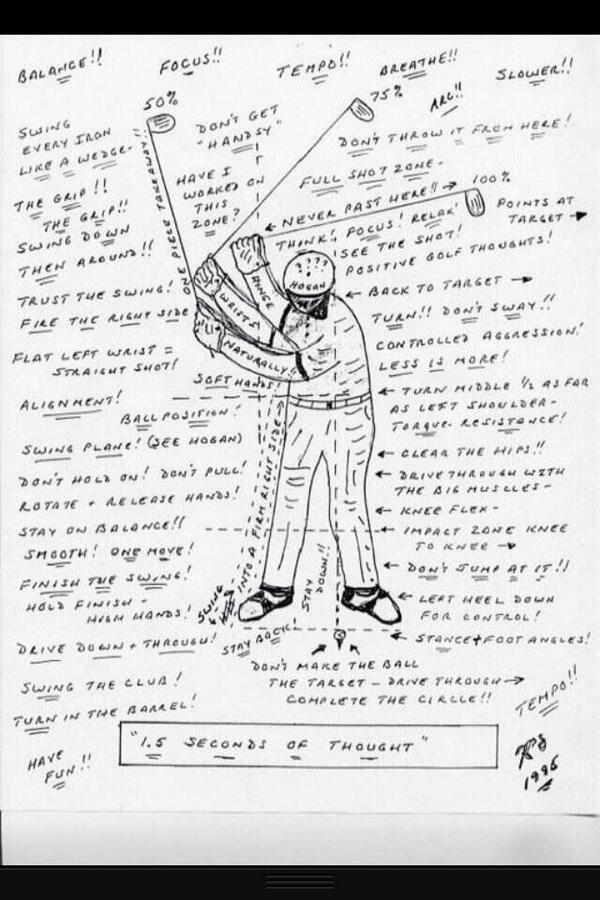 BALANCE!!
FOCUS!!
TEMPO!!
BREATHE!!
SLOWER!!
50%
75%
ARG!!
SWING
EVERY IRON
LIKE A WEDGE-
DON'T GET
"HANDSY"
DON'T THROW IT FROM HERE!
THE GRIP!!
THE GRIP!!
HAVE I
WORKED ON
THIS
ZONE?
FULL SHOT ZONE-
100%
ONE PIECE TAKEAWAY!!
← NEVER PAST HERE!! →
POINTS AT
TARGET →
SWING DOWN
THEN AROUND!!
THINK! FOCUS! RELAX!
SEE THE SHOT!
POSITIVE GOLF THOUGHTS!
????
HOGAN
TRUST THE SWING!
FIRE THE RIGHT SIDE
WRISTS
HINGE
NATURALLY!!
SOFT HANDS!
← BACK TO TARGET →
TURN!! DON'T SWAY!!
CONTROLLED AGGRESSION!
LESS IS MORE!
FLAT LEFT WRIST =
STRAIGHT SHOT!
ALIGNMENT!
BALL POSITION!
← TURN MIDDLE 1/2 AS FAR
AS LEFT SHOULDER-
TORQUE-RESISTANCE!
SWING PLANE! (SEE HOGAN)
← CLEAR THE HIPS!!
DON'T HOLD ON! DON'T PULL!
← DRIVE THROUGH WITH
THE BIG MUSCLES-
ROTATE + RELEASE HANDS!
← KNEE FLEX-
STAY ON BALANCE!!
← IMPACT ZONE KNEE
TO KNEE →
SMOOTH! ONE MOVE!
INTO A FIRM RIGHT SIDE
STAY
DOWN!!
← DON'T JUMP AT IT!!
FINISH THE SWING!
HOLD FINISH-
HIGH HANDS!
SWING
← LEFT HEEL DOWN
FOR CONTROL!
DRIVE DOWN + THROUGH!
STAY BACK
← STANCE + FOOT ANGLES!
DON'T MAKE THE BALL
THE TARGET - DRIVE THROUGH →
COMPLETE THE CIRCLE!!
SWING THE CLUB!
TURN IN THE BARREL!
TEMPO!!
"1.5 SECONDS OF THOUGHT"
HAVE
FUN!!
1995